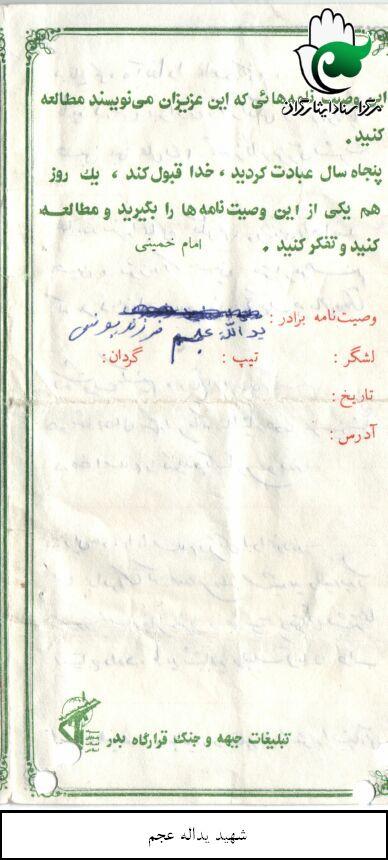 مرکز اسناد ایثارگران
این وصیت نامه‌هائی که این عزیزان می‌نویسند مطالعه
کنید.
پنجاه سال عبادت کردید، خدا قبول کند، یك روز
هم یکی از این وصیت‌نامه‌ها را بگیرید و مطالعـه
کنید و تفکر کنید. امام خمینی
وصیت‌نامه برادر:
یدالله عجم فرزند یونس
لشگر: تیپ: گردان:
تاریخ:
آدرس:
تبلیغات جبهه و جنگ قرارگاه بدر
شهید یداله عجم